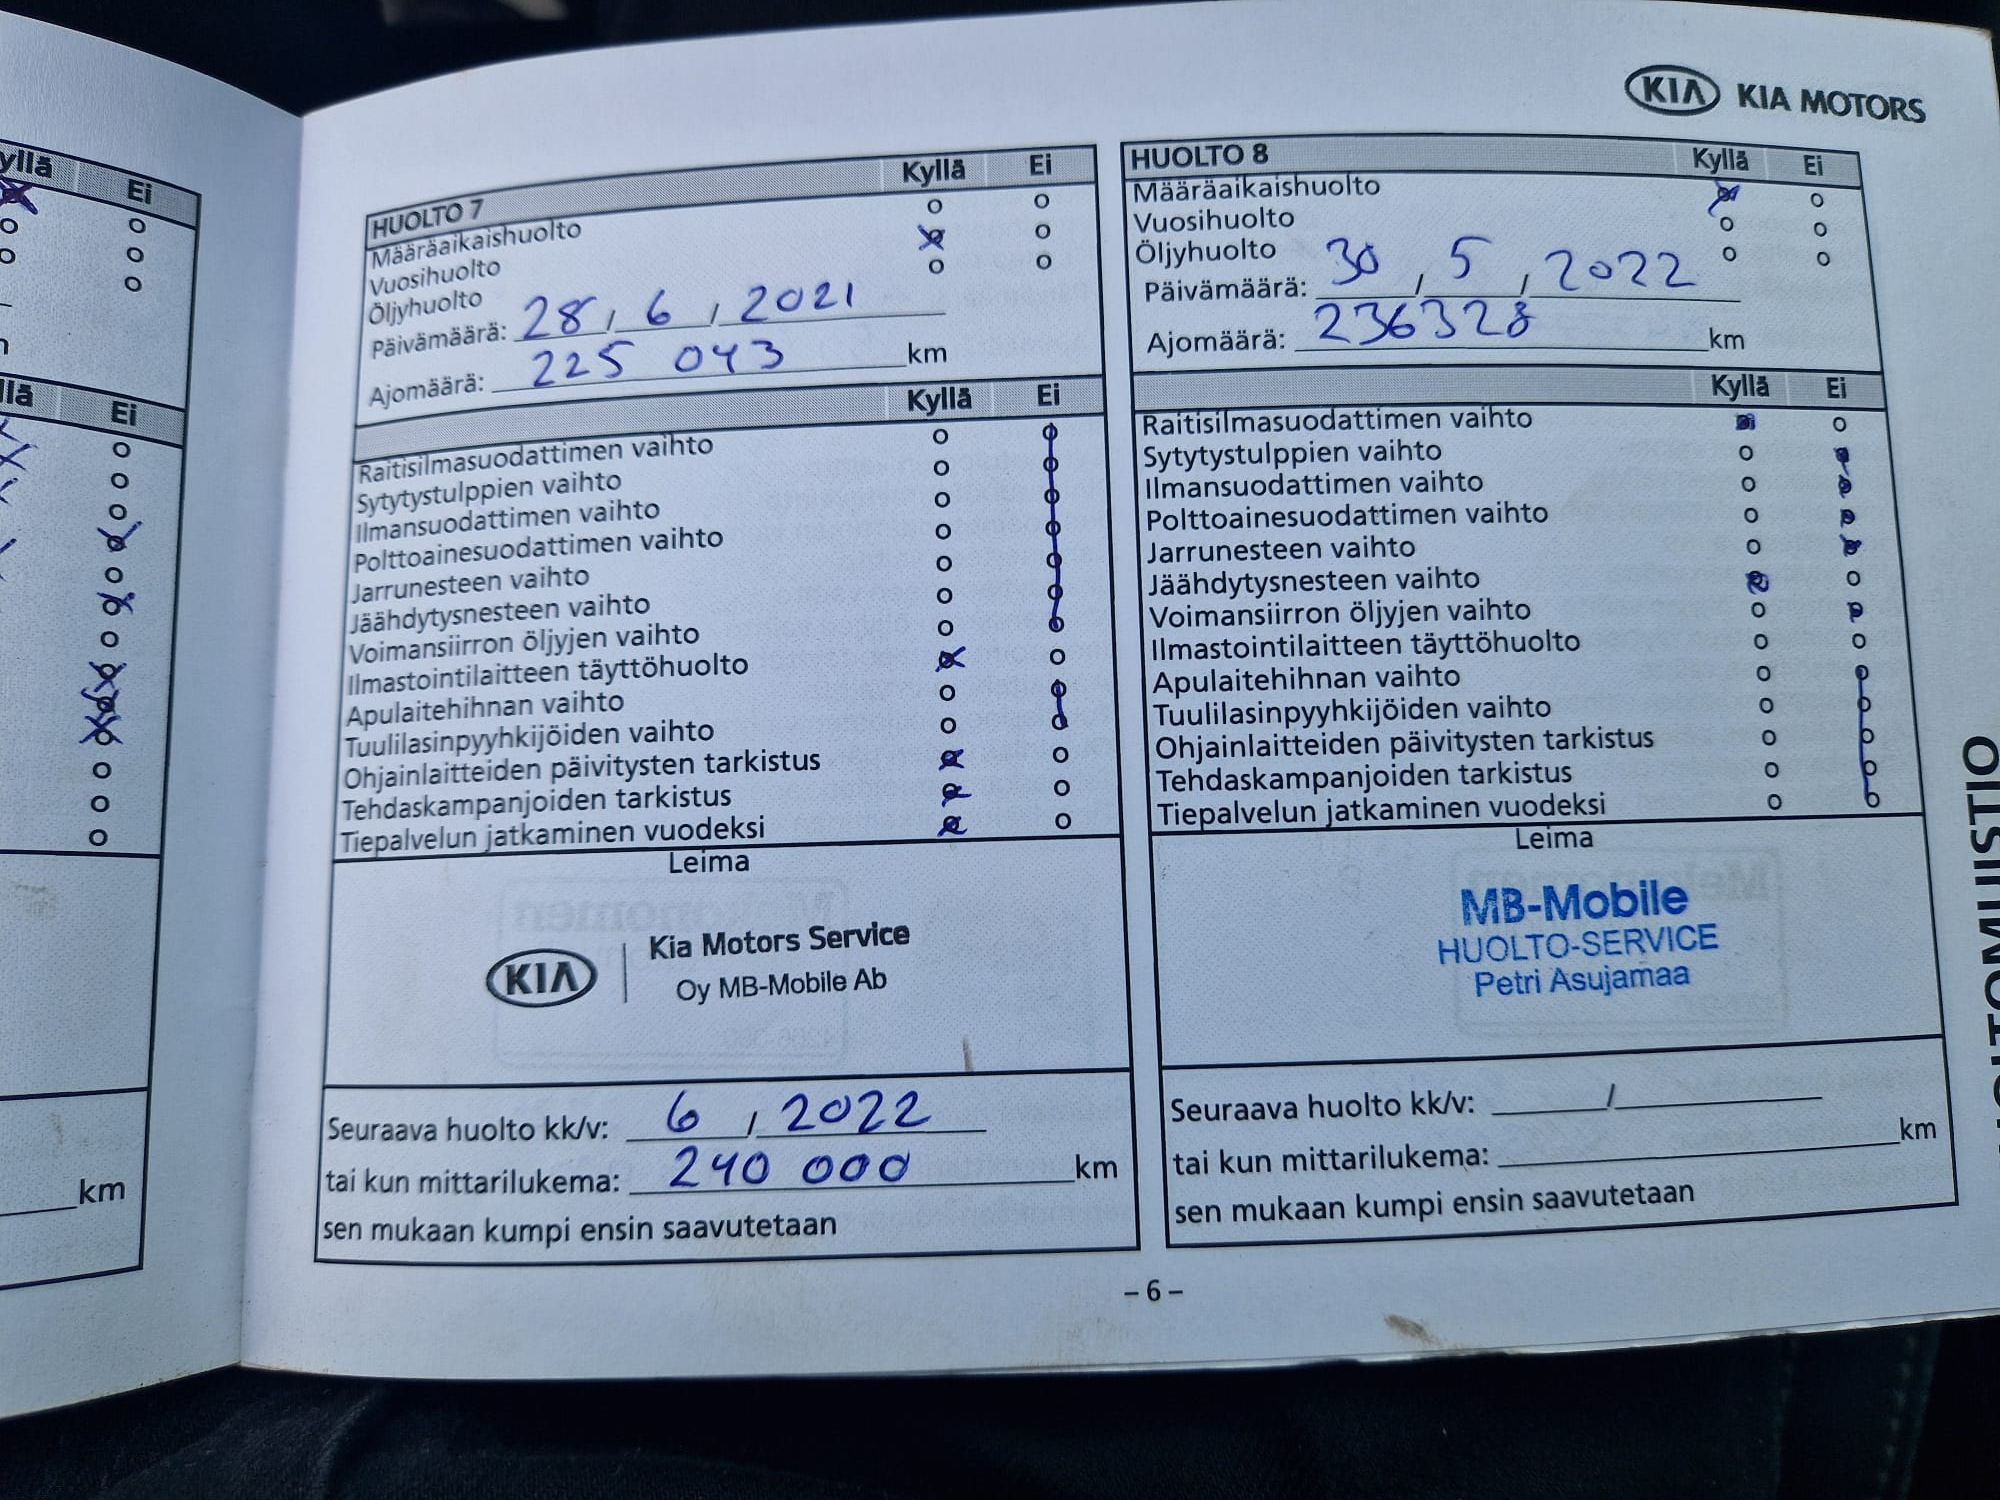 yllä Ei
llä Ei
km
KIA KIA MOTORS
HUOLTO 7 Kyllä Ei
Määräaikaishuolto
Vuosihuolto
Öljyhuolto
Päivämäärä: 28 / 6 / 2021
Ajomäärä: 225 043 km
Kyllä Ei
Raitisilmasuodattimen vaihto
Sytytystulppien vaihto
Ilmansuodattimen vaihto
Polttoainesuodattimen vaihto
Jarrunesteen vaihto
Jäähdytysnesteen vaihto
Voimansiirron öljyjen vaihto
Ilmastointilaitteen täyttöhuolto
Apulaitehihnan vaihto
Tuulilasinpyyhkijöiden vaihto
Ohjainlaitteiden päivitysten tarkistus
Tehdaskampanjoiden tarkistus
Tiepalvelun jatkaminen vuodeksi
Leima
KIA Kia Motors Service
Oy MB-Mobile Ab
Seuraava huolto kk/v: 6 / 2022
tai kun mittarilukema: 240 000 km
sen mukaan kumpi ensin saavutetaan
HUOLTO 8 Kyllä Ei
Määräaikaishuolto
Vuosihuolto
Öljyhuolto
Päivämäärä: 30 / 5 / 2022
Ajomäärä: 236328 km
Kyllä Ei
Raitisilmasuodattimen vaihto
Sytytystulppien vaihto
Ilmansuodattimen vaihto
Polttoainesuodattimen vaihto
Jarrunesteen vaihto
Jäähdytysnesteen vaihto
Voimansiirron öljyjen vaihto
Ilmastointilaitteen täyttöhuolto
Apulaitehihnan vaihto
Tuulilasinpyyhkijöiden vaihto
Ohjainlaitteiden päivitysten tarkistus
Tehdaskampanjoiden tarkistus
Tiepalvelun jatkaminen vuodeksi
Leima
MB-Mobile
HUOLTO-SERVICE
Petri Asujamaa
Seuraava huolto kk/v: /
tai kun mittarilukema: km
sen mukaan kumpi ensin saavutetaan
– 6 –